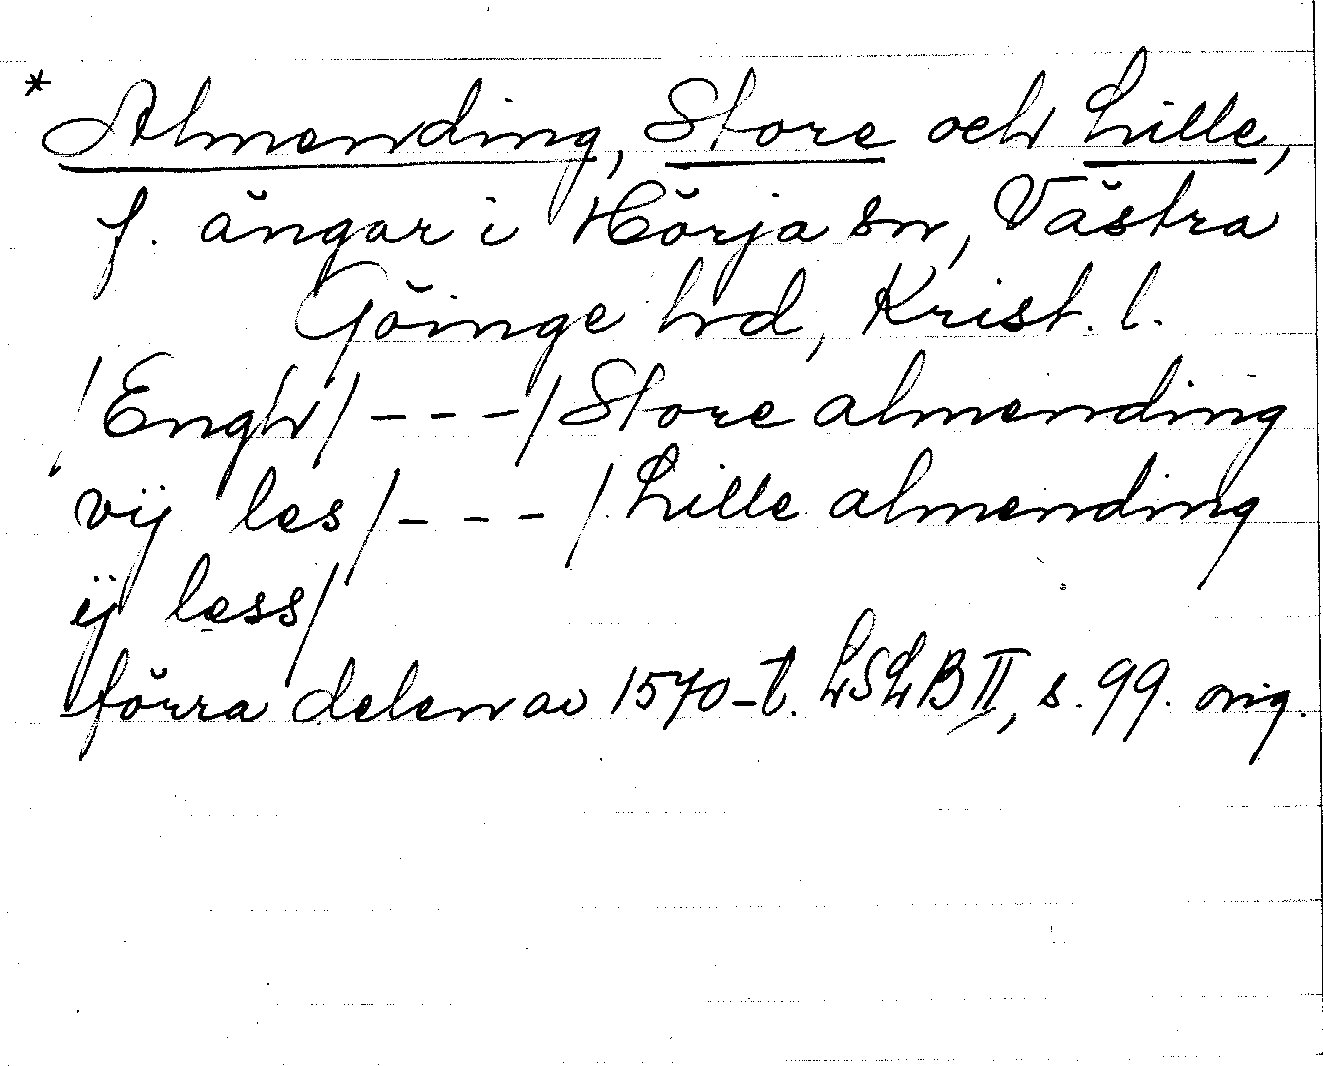 * Almending, Store och Lille,
f. ängar i Hörja sn, Västra
Göinge hd, Krist. l.
/Engh/ - - - / Store almending
vij les / - - - / Lille almending
ij less/
förra delen av 1570-t. LSLB II, s. 99. orig.